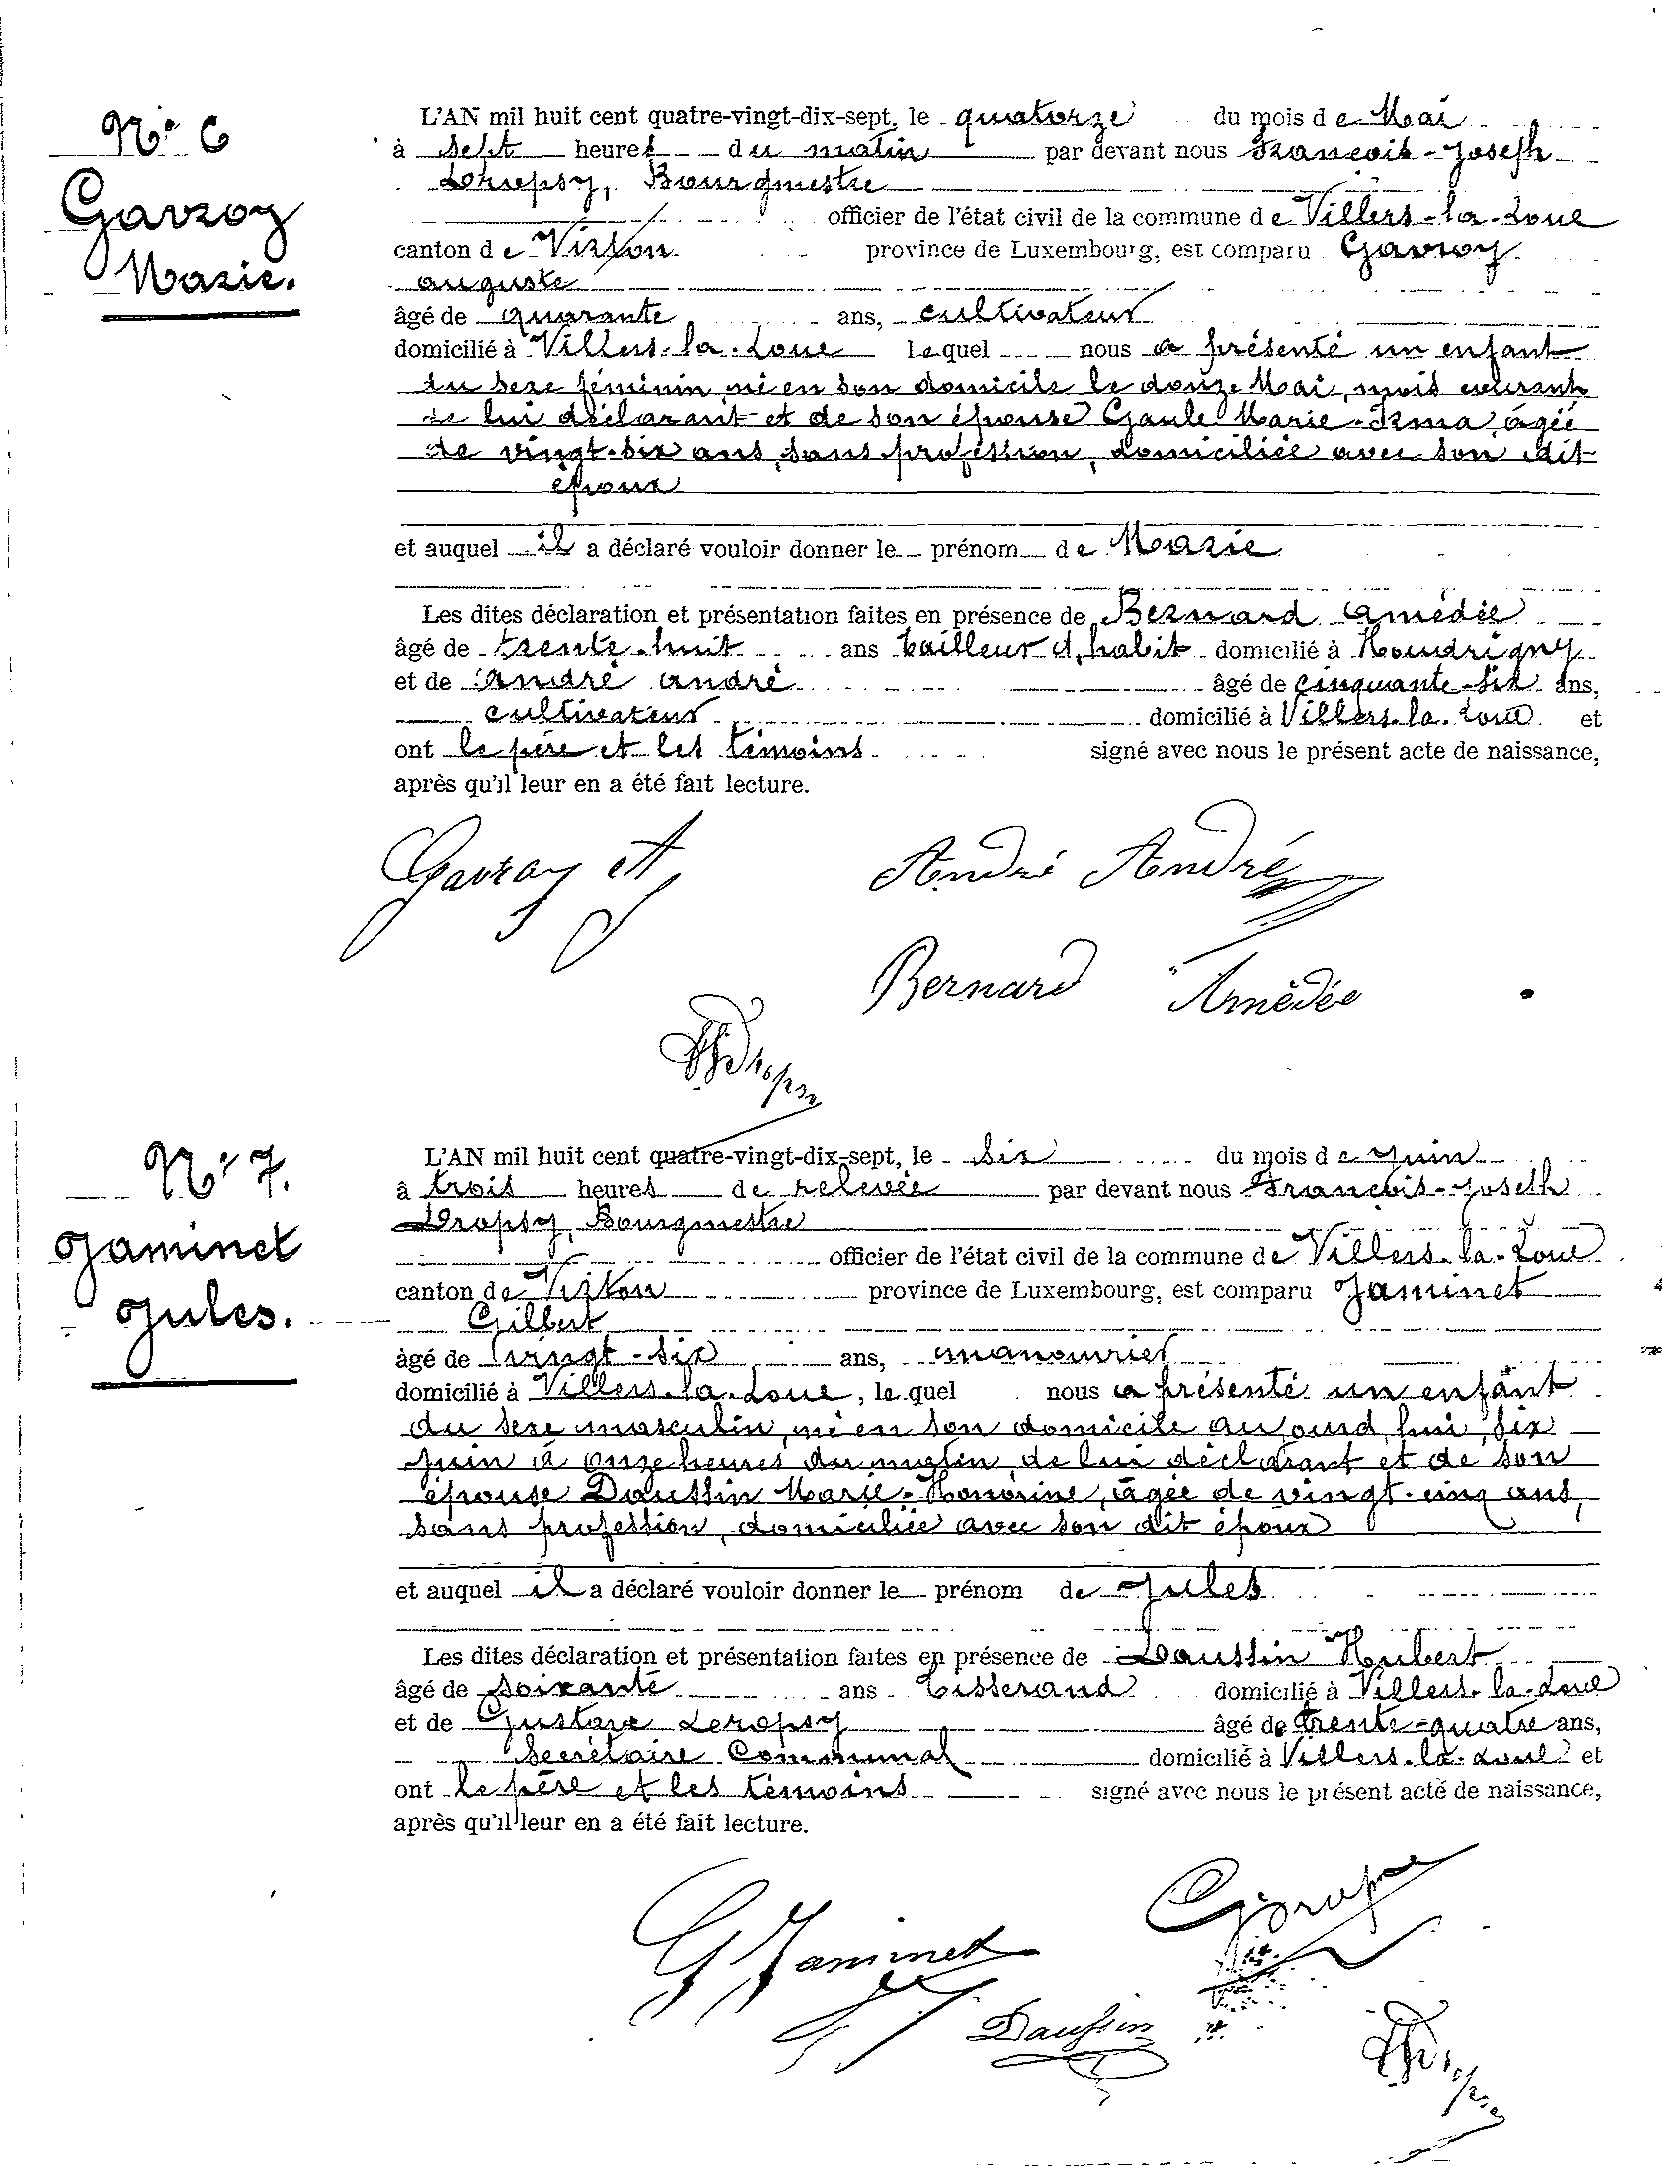 N° 6
Gavroy
Marie.
L'AN mil huit cent quatre-vingt-dix-sept, le quatorze du mois de Mai
à sept heures du matin par devant nous François-Joseph
Dropsy, Bourgmestre
officier de l'état civil de la commune de Villers-la-Loue
canton de Virton province de Luxembourg, est comparu Gavroy
auguste
âgé de quarante ans, cultivateur
domicilié à Villers-la-Loue lequel nous a présenté un enfant
du sexe féminin, né en son domicile le douze Mai, mois courant
de lui déclarant et de son épouse Gaule Marie-Irma, âgée
de vingt-six ans, sans profession, domiciliée avec son dit
époux
et auquel il a déclaré vouloir donner le prénom de Marie
Les dites déclaration et présentation faites en présence de Bernard Amédée
âgé de trente-huit ans tailleur d'habit domicilié à Houdrigny
et de André André âgé de cinquante-six ans,
cultivateur domicilié à Villers-la-Loue et
ont le père et les témoins signé avec nous le présent acte de naissance,
après qu'il leur en a été fait lecture.
Gavroy A
André André
Bernard Amédée
N° 7.
Jaminet
Jules.
L'AN mil huit cent quatre-vingt-dix-sept, le six du mois de Juin
à trois heures de relevée par devant nous François-Joseph
Dropsy, Bourgmestre
officier de l'état civil de la commune de Villers-la-Loue
canton de Virton province de Luxembourg, est comparu Jaminet
Gilbert
âgé de vingt-six ans, manouvrier
domicilié à Villers-la-Loue, lequel nous a présenté un enfant
du sexe masculin, né en son domicile aujourd'hui, six
Juin à onze heures du matin, de lui déclarant et de son
épouse Daussin Marie-Honorine, âgée de vingt-cinq ans,
sans profession, domiciliée avec son dit époux
et auquel il a déclaré vouloir donner le prénom de Jules
Les dites déclaration et présentation faites en présence de Daussin Hubert
âgé de soixante ans tisserand domicilié à Villers-la-Loue
et de Gustave Dropsy âgé de trente-quatre ans,
Secrétaire Communal domicilié à Villers-la-Loue et
ont le père et les témoins signé avec nous le présent acte de naissance,
après qu'il leur en a été fait lecture.
G Jaminet
GDropsy
Daussin